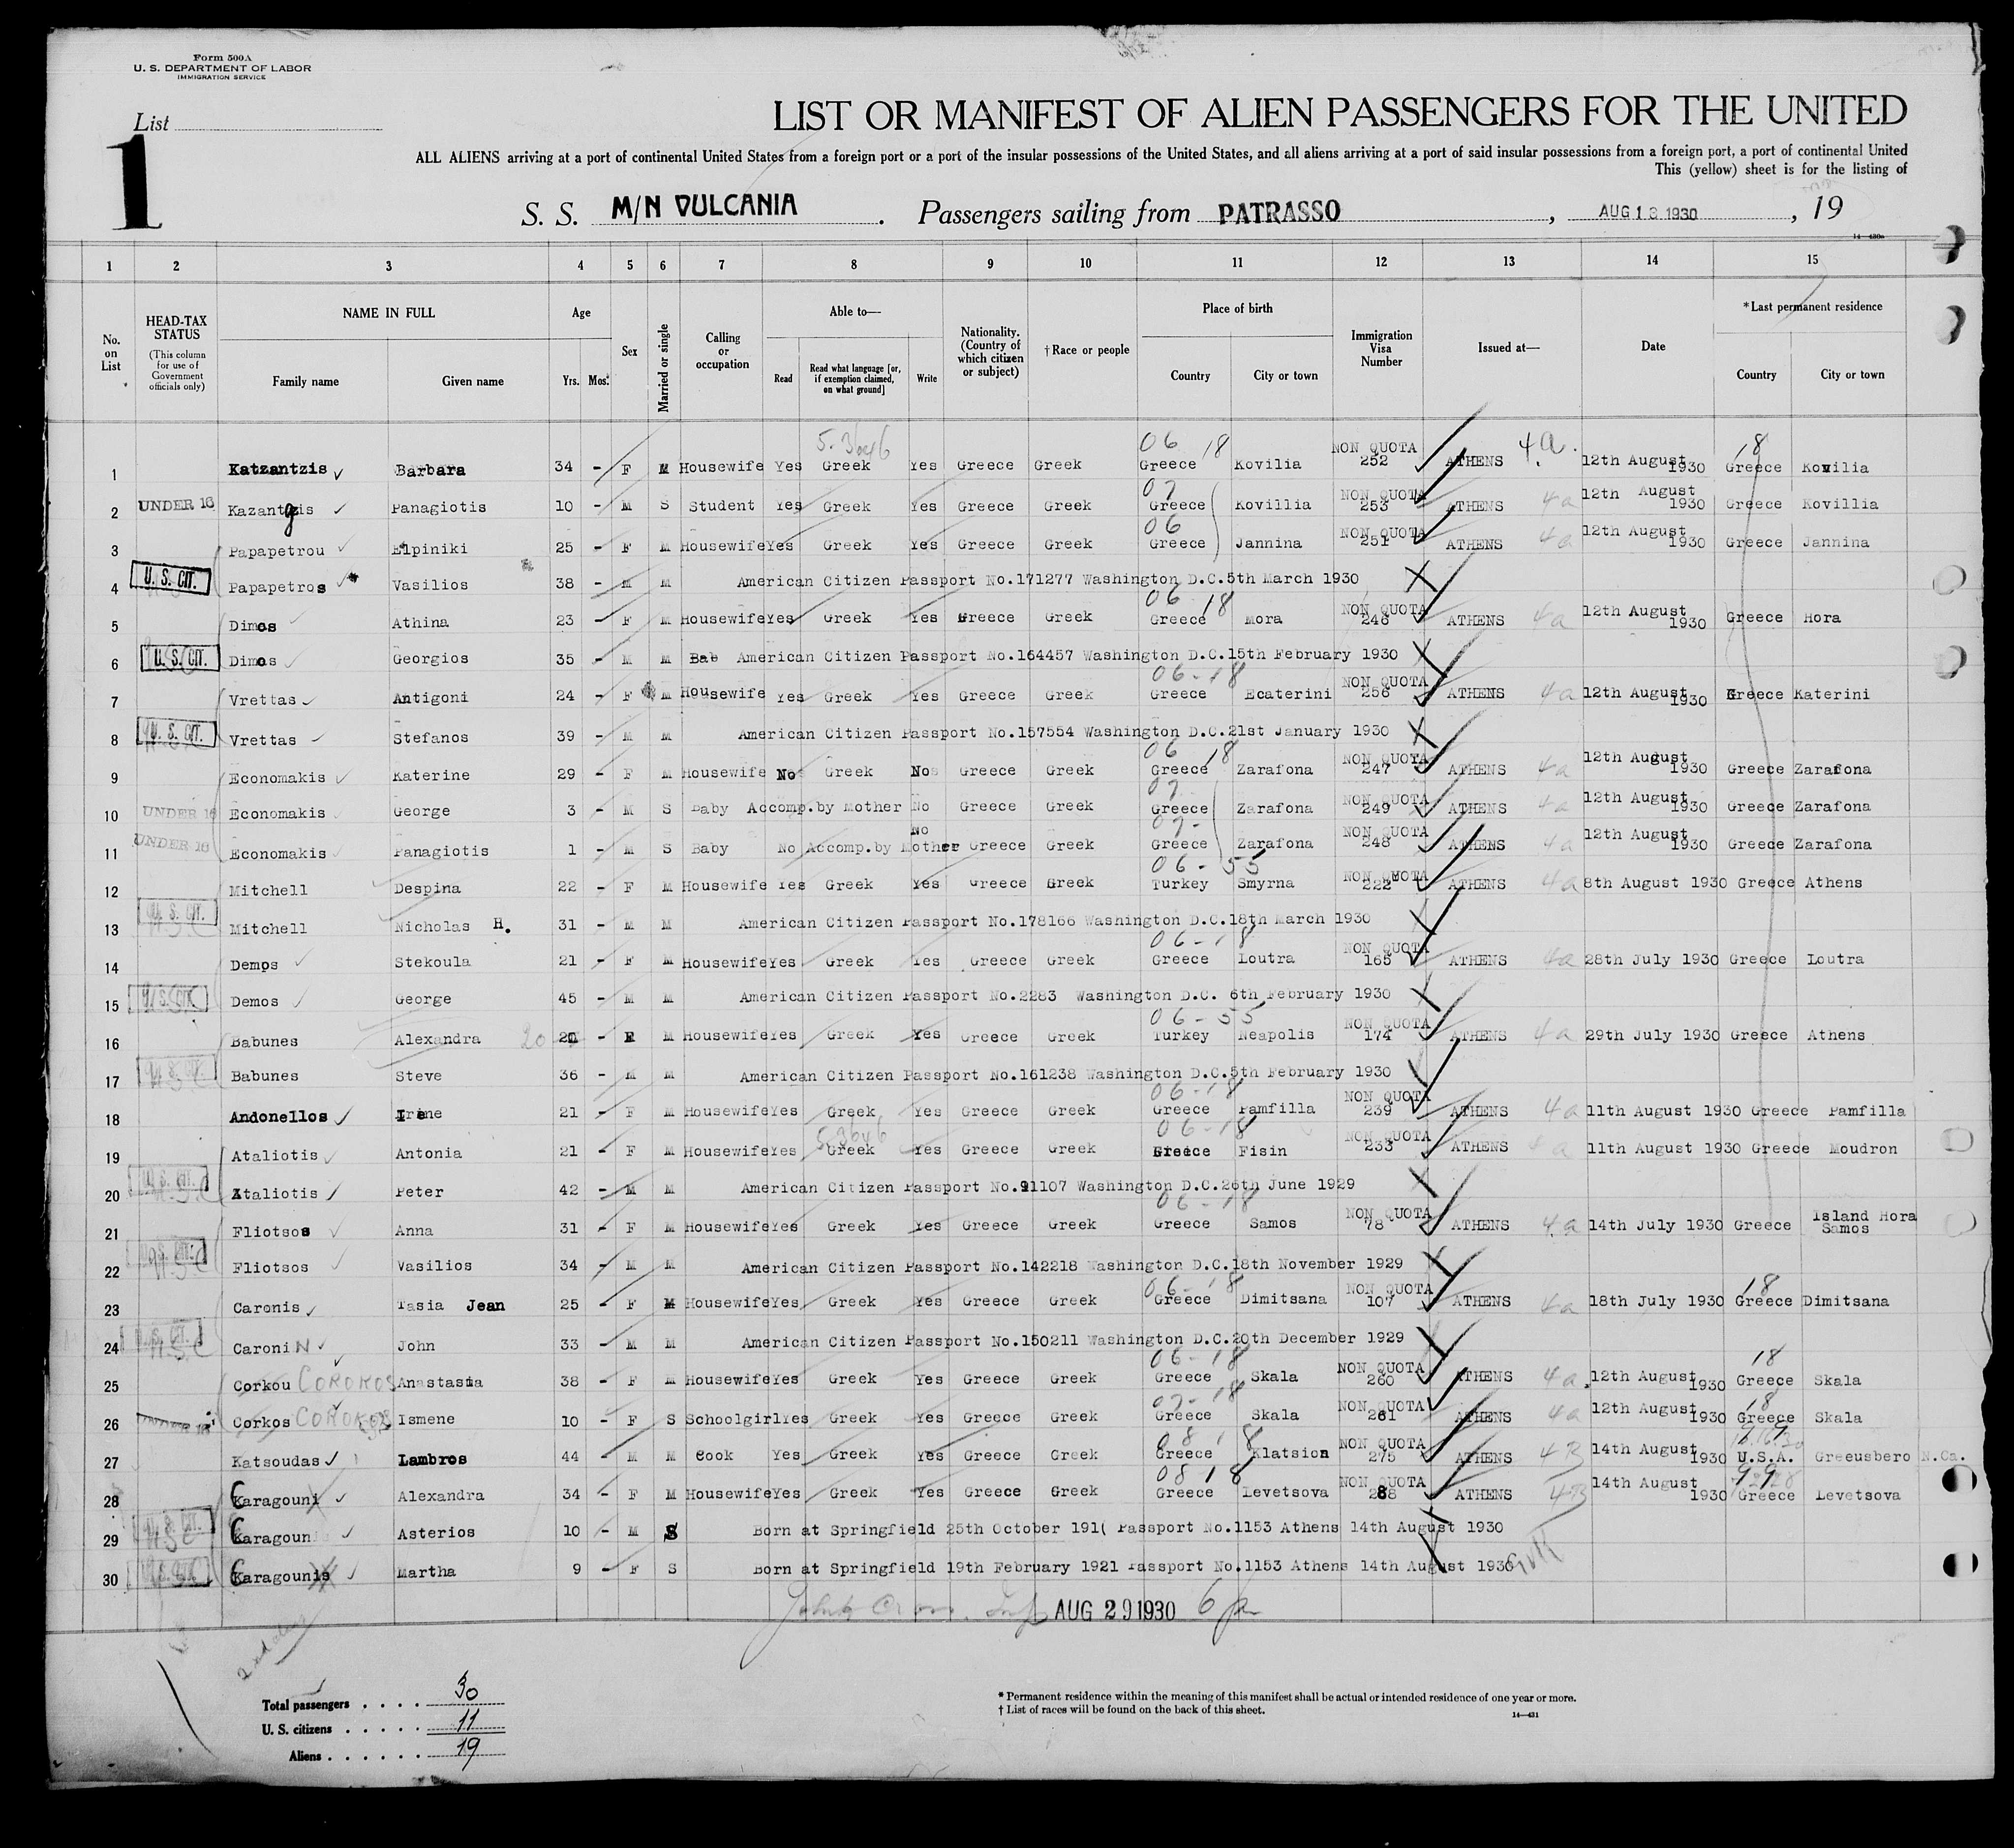 Form 500A
U. S. DEPARTMENT OF LABOR
IMMIGRATION SERVICE
List
1
LIST OR MANIFEST OF ALIEN PASSENGERS FOR THE UNITED
ALL ALIENS arriving at a port of continental United States from a foreign port or a port of the insular possessions of the United States, and all aliens arriving at a port of said insular possessions from a foreign port, a port of continental United
This (yellow) sheet is for the listing of
S. S. M/N VULCANIA. Passengers sailing from PATRASSO, AUG 13 1930, 19
1 2 3 4 5 6 7 8 9 10 11 12 13 14 15
No. on List
HEAD-TAX STATUS (This column for use of Government officials only)
NAME IN FULL Family name Given name
Age Yrs. Mos.
Sex
Married or single
Calling or occupation
Able to— Read Read what language [or, if exemption claimed, on what ground] Write
Nationality. (Country of which citizen or subject)
† Race or people
Place of birth Country City or town
Immigration Visa Number
Issued at—
Date
*Last permanent residence Country City or town
5.3646 06 18 4a. 18
1 Katzantzis Barbara 34 - F M Housewife Yes Greek Yes Greece Greek Greece Kovilia NON QUOTA 252 ATHENS 12th August 1930 Greece Kovilia
2 UNDER 16 Kazantgis Panagiotis 10 - M S Student Yes Greek Yes Greece Greek 07 Greece Kovillia NON QUOTA 253 ATHENS 4a 12th August 1930 Greece Kovillia
3 Papapetrou Elpiniki 25 - F M Housewife Yes Greek Yes Greece Greek 06 Greece Jannina NON QUOTA 251 ATHENS 4a 12th August 1930 Greece Jannina
4 U. S. CIT. Papapetros Vasilios 38 - M M American Citizen Passport No.171277 Washington D.C.5th March 1930
5 Dimos Athina 23 - F M Housewife Yes Greek Yes Greece Greek 06 18 Greece Mora NON QUOTA 246 ATHENS 4a 12th August 1930 Greece Hora
6 U. S. CIT. Dimos Georgios 35 - M M American Citizen Passport No.164457 Washington D.C.15th February 1930
7 Vrettas Antigoni 24 - F M Housewife Yes Greek Yes Greece Greek 06-18 Greece Ecaterini NON QUOTA 256 ATHENS 4a 12th August 1930 Greece Katerini
8 U. S. CIT. Vrettas Stefanos 39 - M M American Citizen Passport No.157554 Washington D.C.21st January 1930
9 Economakis Katerine 29 - F M Housewife No Greek No Greece Greek 06 18 Greece Zarafona NON QUOTA 247 ATHENS 4a 12th August 1930 Greece Zarafona
10 UNDER 16 Economakis George 3 - M S Baby Accomp.by Mother No Greece Greek 07 Greece Zarafona NON QUOTA 249 ATHENS 4a 12th August 1930 Greece Zarafona
11 UNDER 16 Economakis Panagiotis 1 - M S Baby No Accomp.by Mother No Greece Greek 07- Greece Zarafona NON QUOTA 248 ATHENS 4a 12th August 1930 Greece Zarafona
12 Mitchell Despina 22 - F M Housewife Yes Greek Yes Greece Greek 06-55 Turkey Smyrna NON QUOTA 222 ATHENS 4a 8th August 1930 Greece Athens
13 U. S. CIT. Mitchell Nicholas H. 31 - M M American Citizen Passport No.178166 Washington D.C.18th March 1930
14 Demos Stekoula 21 - F M Housewife Yes Greek Yes Greece Greek 06-18 Greece Loutra NON QUOTA 165 ATHENS 4a 28th July 1930 Greece Loutra
15 U. S. CIT. Demos George 45 - M M American Citizen Passport No.2283 Washington D.C. 6th February 1930
16 Babunes Alexandra 20 - F M Housewife Yes Greek Yes Greece Greek 06-55 Turkey Neapolis NON QUOTA 174 ATHENS 4a 29th July 1930 Greece Athens
17 U. S. CIT. Babunes Steve 36 - M M American Citizen Passport No.161238 Washington D.C.5th February 1930
18 Andonellos Irene 21 - F M Housewife Yes Greek Yes Greece Greek 06-18 Greece Pamfilla NON QUOTA 239 ATHENS 4a 11th August 1930 Greece Pamfilla
19 Ataliotis Antonia 21 - F M Housewife Yes 5.3646 Greek Yes Greece Greek 06-18 Greece Fisin NON QUOTA 233 ATHENS 4a 11th August 1930 Greece Moudron
20 U. S. CIT. Ataliotis Peter 42 - M M American Citizen Passport No.91107 Washington D.C.26th June 1929
21 Fliotsos Anna 31 - F M Housewife Yes Greek Yes Greece Greek 06-18 Greece Samos NON QUOTA 78 ATHENS 4a 14th July 1930 Greece Island Hora Samos
22 U. S. CIT. Fliotsos Vasilios 34 - M M American Citizen Passport No.142218 Washington D.C.18th November 1929
23 Caronis Tasia Jean 25 - F M Housewife Yes Greek Yes Greece Greek 06-18 Greece Dimitsana NON QUOTA 107 ATHENS 4a 18th July 1930 18 Greece Dimitsana
24 U. S. CIT. Caronin John 33 - M M American Citizen Passport No.150211 Washington D.C.20th December 1929
25 Corkou COROKOS Anastasia 38 - F M Housewife Yes Greek Yes Greece Greek 06-18 Greece Skala NON QUOTA 260 ATHENS 4a. 12th August 1930 18 Greece Skala
26 UNDER 16 Corkos COROKOS Ismene 10 - F S Schoolgirl Yes Greek Yes Greece Greek 07-18 Greece Skala NON QUOTA 261 ATHENS 4a 12th August 1930 18 Greece Skala
27 Katsoudas Lambros 44 - M M Cook Yes Greek Yes Greece Greek 08 18 Greece Klatsion NON QUOTA 275 ATHENS 4B 14th August 1930 U.S.A. Greeusbero N.Ca.
28 Karagouni Alexandra 34 - F M Housewife Yes Greek Yes Greece Greek 08 18 Greece Levetsova NON QUOTA ATHENS 4B 14th August 1930 99 Greece Levetsova
29 U. S. CIT. Karagouni Asterios 10 - M S Born at Springfield 25th October 191( Passport No.1153 Athens 14th August 1930
30 U. S. CIT. Karagounis Martha 9 - F S Born at Springfield 19th February 1921 Passport No.1153 Athens 14th August 1930
AUG 29 1930
Total passengers . . . . 30
U. S. citizens . . . . . 11
Aliens . . . . . . 19
* Permanent residence within the meaning of this manifest shall be actual or intended residence of one year or more.
† List of races will be found on the back of this sheet.
14—431